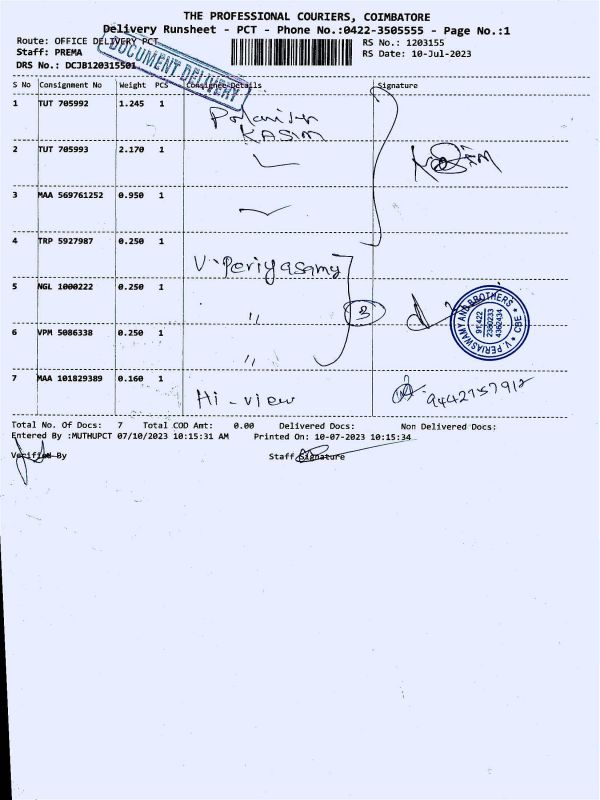 THE PROFESSIONAL COURIERS, COIMBATORE
Delivery Runsheet - PCT - Phone No.:0422-3505555 - Page No.:1
Route: OFFICE DELIVERY PCT
RS No.: 1203155
Staff: PREMA
RS Date: 10-Jul-2023
DRS No.: DCJB120315501
DOCUMENT DELIVERY
S No Consignment No Weight PCS Consignee Details Signature
1 TUT 705992 1.245 1
KASIM
2 TUT 705993 2.170 1
3 MAA 569761252 0.950 1
4 TRP 5927987 0.250 1 V. Periyasamy
5 NGL 1000222 0.250 1 " 3
V. PERIASWAMY AND BROTHERS * CBE *
6 VPM 5086338 0.250 1 "
7 MAA 101829389 0.160 1 Hi-view
Total No. Of Docs: 7 Total COD Amt: 0.00 Delivered Docs: Non Delivered Docs:
Entered By :MUTHUPCT 07/10/2023 10:15:31 AM Printed On: 10-07-2023 10:15:34
Verified By Staff Signature